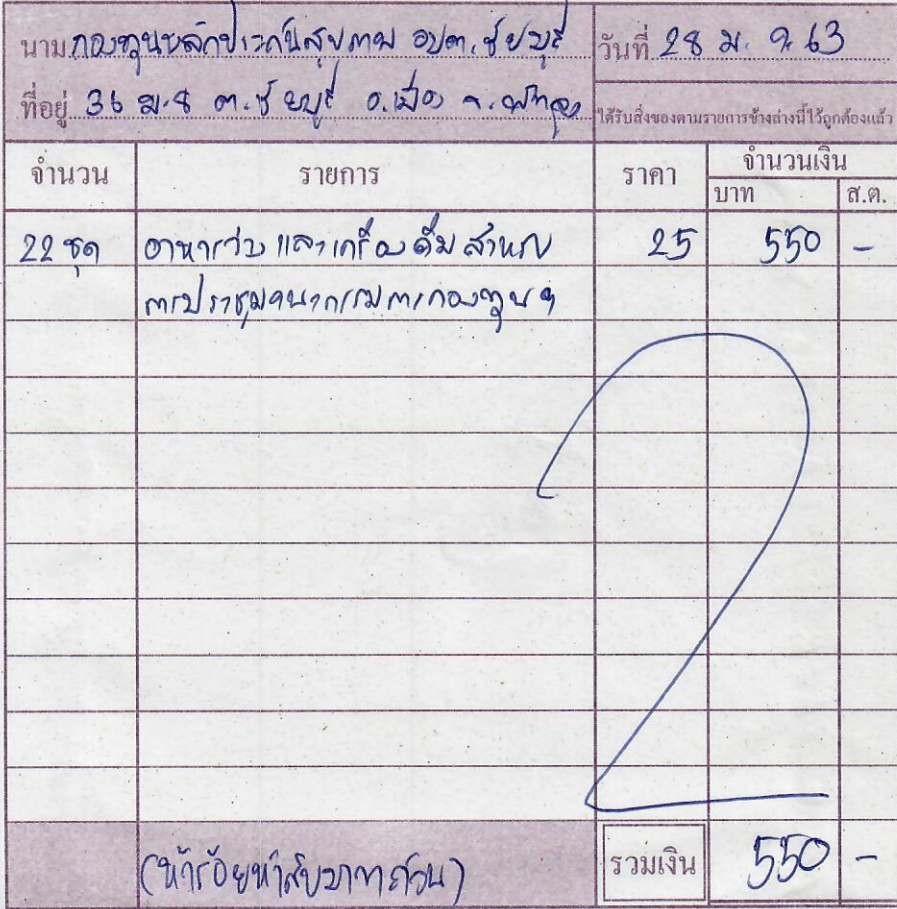 นาม กองทุนหลักประกันสุขภาพ อบต.ชัยบุรี วันที่ 28 ม.ค. 63
ที่อยู่ 36 ม.8 ต.ชัยบุรี อ.เมือง จ.พัทลุง ได้รับสิ่งของตามรายการข้างล่างนี้ไว้ถูกต้องแล้ว
จำนวน รายการ ราคา จำนวนเงิน
บาท ส.ต.
22 ชุด อาหารว่าง และเครื่องดื่ม สำหรับ 25 550 -
การประชุมคณะกรรมการกองทุนฯ
(ห้าร้อยห้าสิบบาทถ้วน) รวมเงิน 550 -